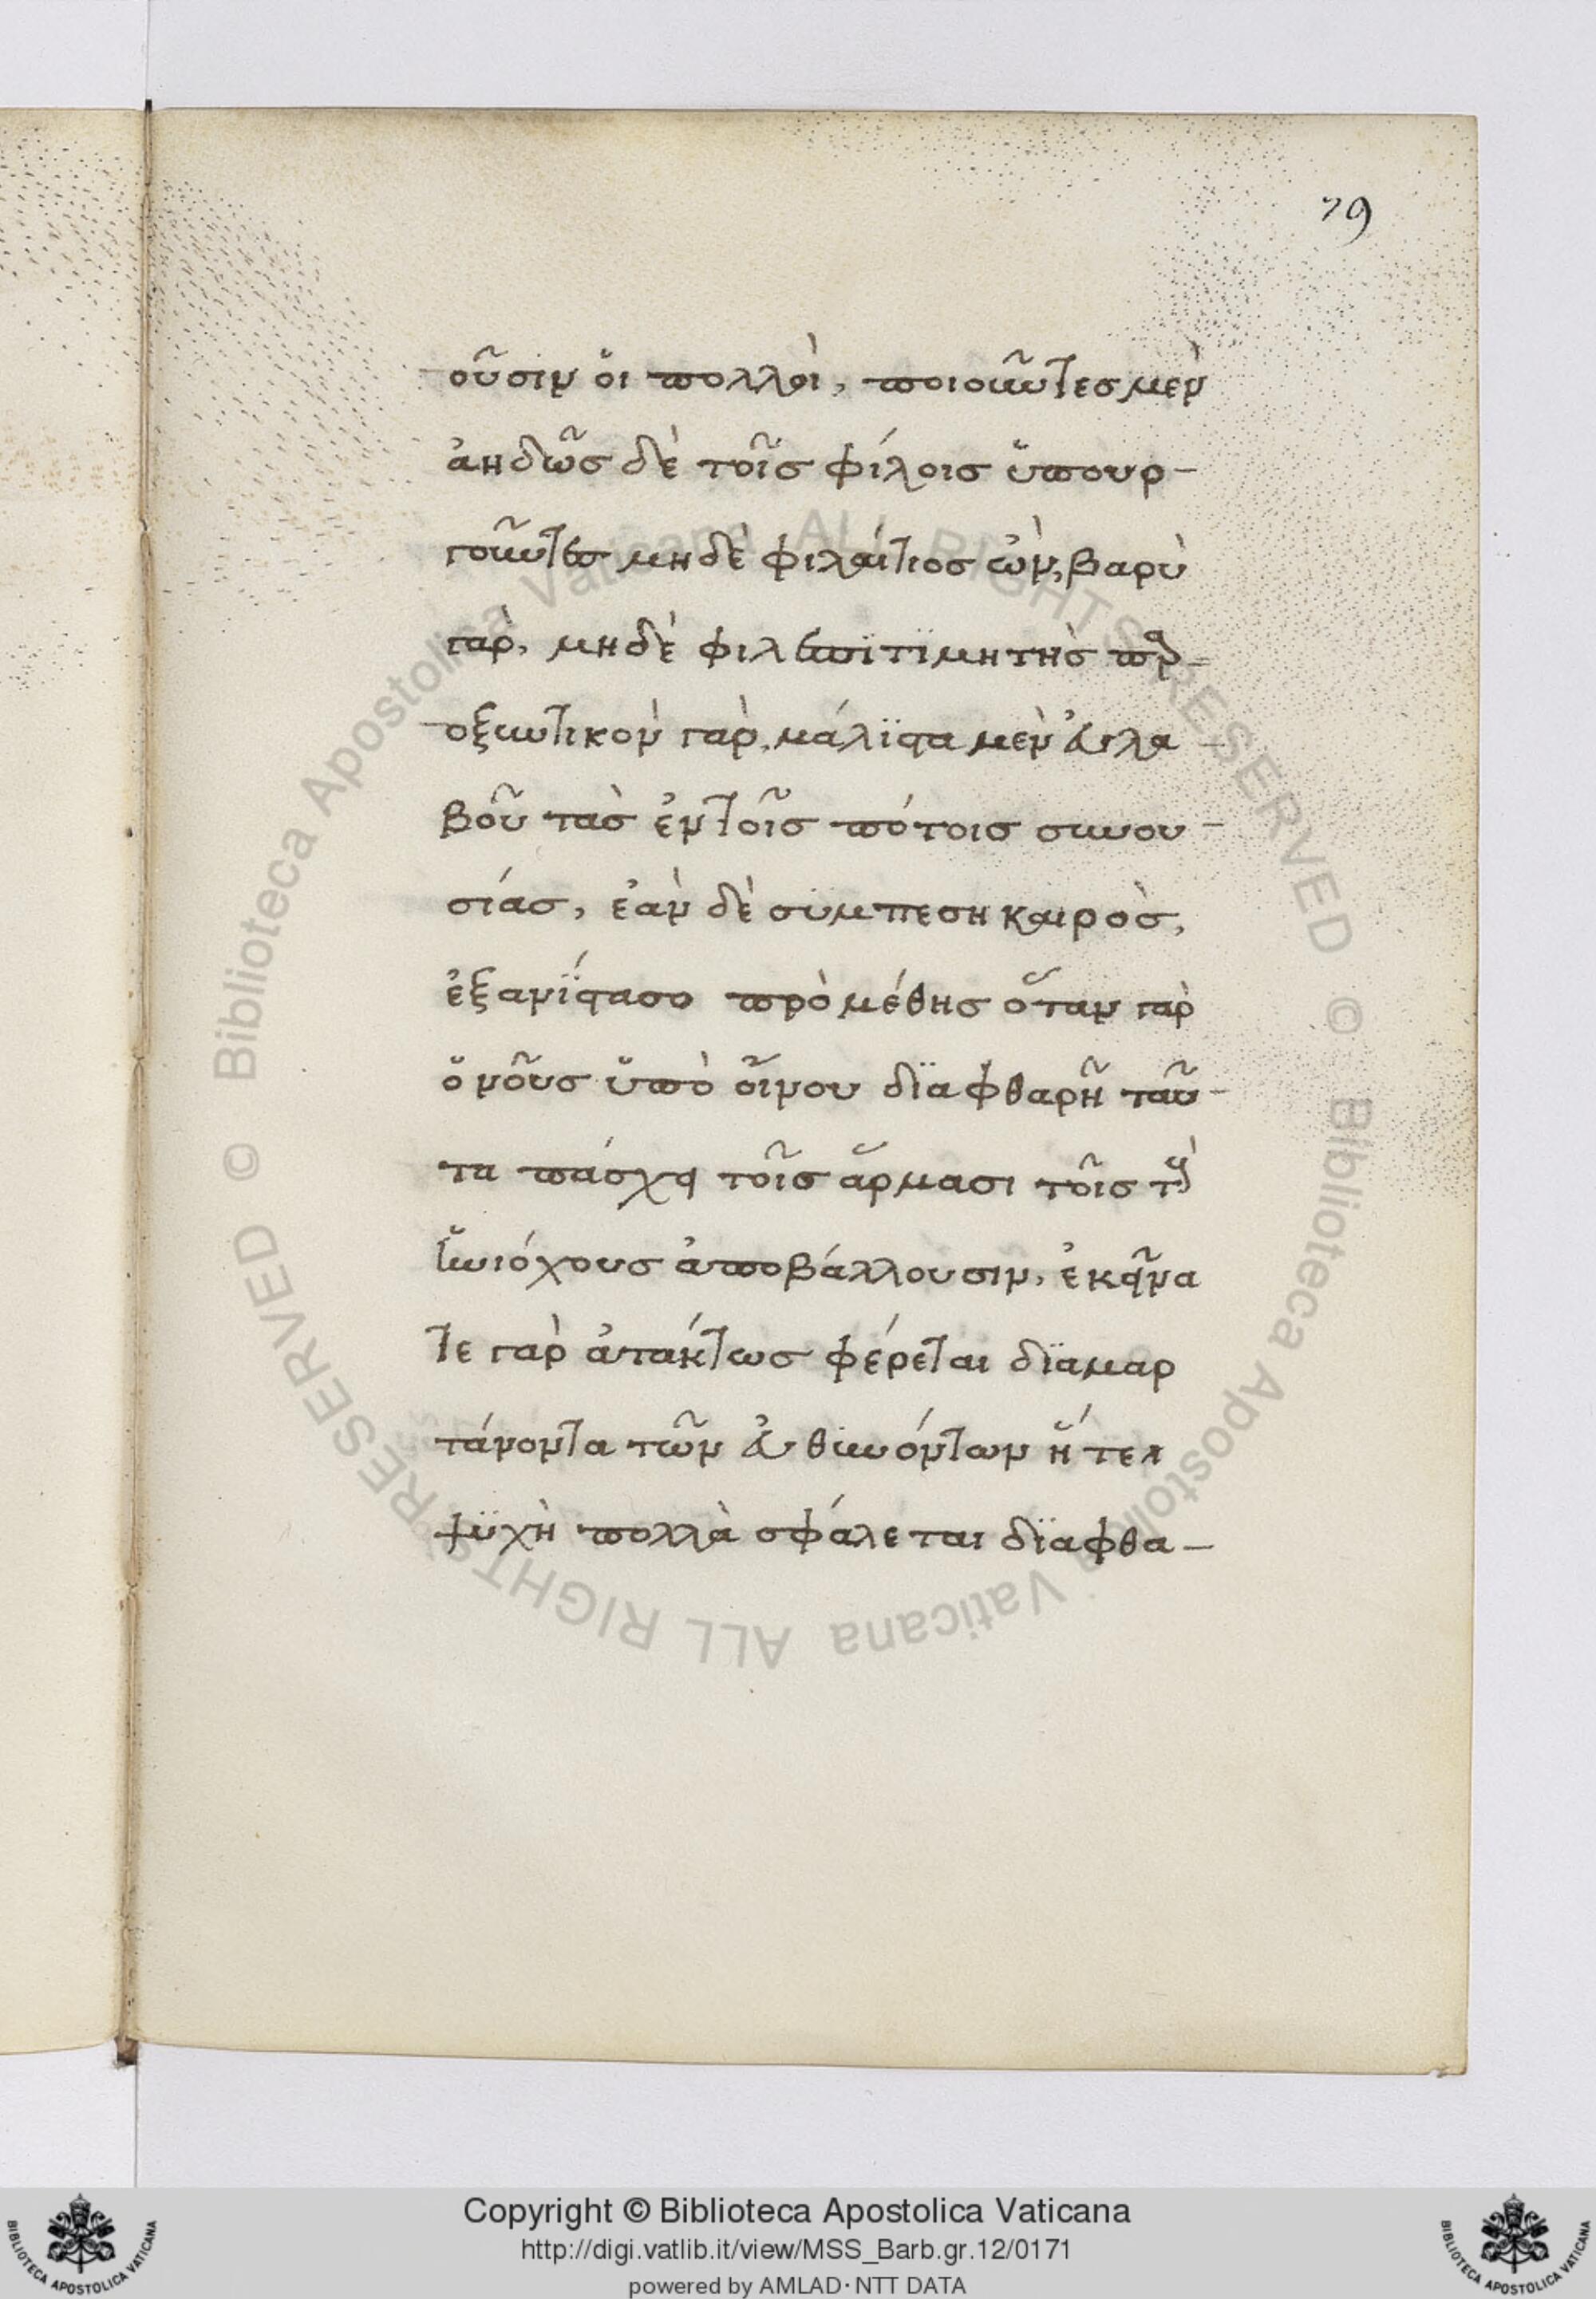 79
οῦσιν ὅι πολλοὶ, ποιοῦντες μὲν
ἀηδῶς δὲ τοῖς φίλοις ὕπουρ-
γοῦντες μηδὲ φιλαίτιος ὢν, βαρὺ
γαρ̀, μηδὲ φιλεπϊτϊμητὴς παρ-
οξυντικὸν γαρ̀, μάλϊστα μὲν ἐυλα-
βοῦ τὰς ἐν τοῖς πότοις συνου-
σίας, ἐὰν δὲ συμπεση καιρὸς,
ἐξανΐστασο πρὸ μέθης ὅταν γαρ̀
ὅ νοῦς ὕπὸ οἴνου δϊαφθαρῆ ταῦ-
τα πάσχει τοῖς ἅρμασι τοῖς τοὺς
ἥνιόχους ἀποβάλλουσιν, ἐκεῖνα
τε γαρ̀ ἀτάκτως φέρεται δϊαμαρ
τάνοντα τῶν ἐυθϋνόντων ἥ τε
ψϋχὴ πολλὰ σφάλεται δϊαφθα-
Biblioteca Apostolica Vaticana ALL RIGHTS RESERVED ©
Biblioteca Apostolica Vaticana ALL RIGHTS RESERVED ©
Copyright © Biblioteca Apostolica Vaticana
http://digi.vatlib.it/view/MSS_Barb.gr.12/0171
powered by AMLAD·NTT DATA
BIBLIOTECA APOSTOLICA VATICANA
BIBLIOTECA APOSTOLICA VATICANA